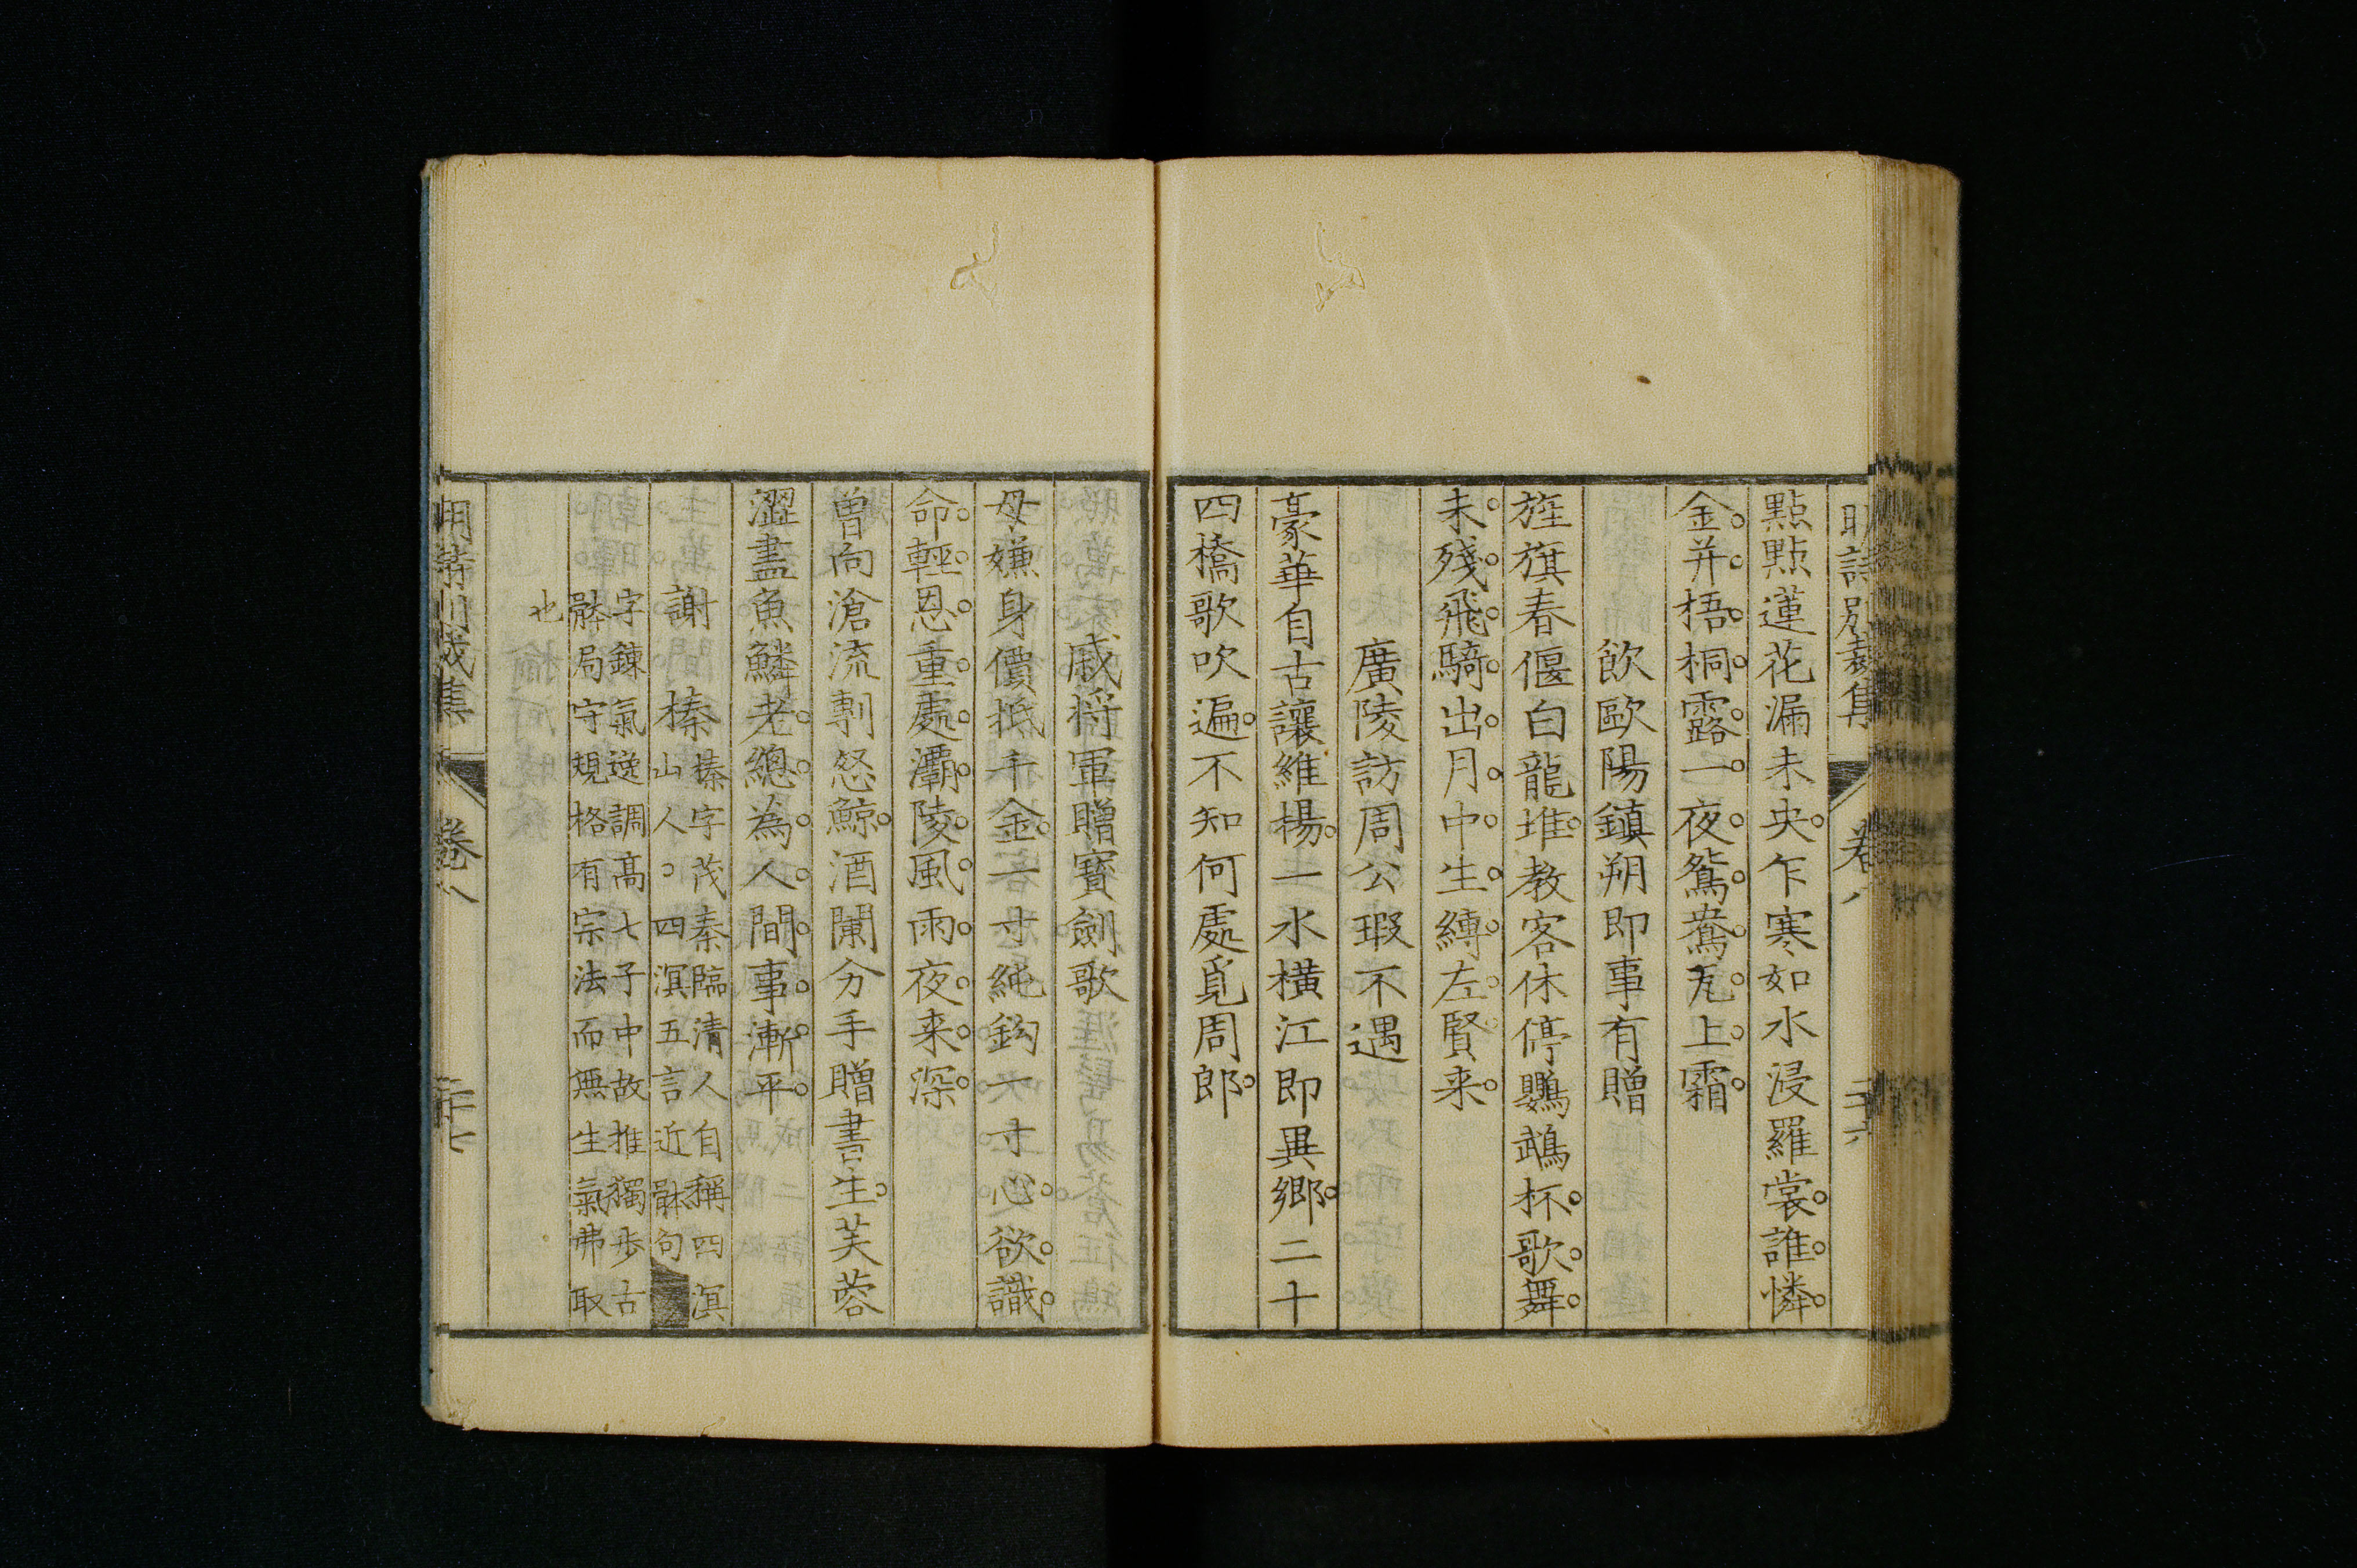 明詩別裁集 卷八 二十六
點點蓮花漏未央乍寒如水浸羅裳誰憐
金井梧桐露一夜鴛鴦瓦上霜
飲歐陽鎮朔即事有贈
旌旗春偃白龍堆教客休停鸚鵡杯歌舞
未殘飛騎出月中生縛左賢来
廣陵訪周公瑕不遇
豪華自古讓維揚一水橫江即異鄉二十
四橋歌吹遍不知何處覓周郎
戚將軍贈寶劍歌
毋嫌身價抵千金一寸純鈎一寸心欲識
命輕恩重處灞陵風雨夜来深
曾向滄流剸怒鯨酒闌分手贈書生芙蓉
澀盡魚鱗老總為人間事漸平
謝榛
榛字茂秦臨清人自稱四溟
山人。四溟五言近骵句
字鍊氣逸調高七子中故推獨步古
骵局守規格有宗法而無生氣弗取
也
卷八 二十七